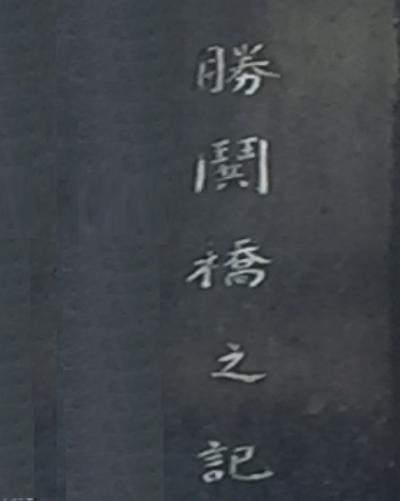 勝鬨橋之記